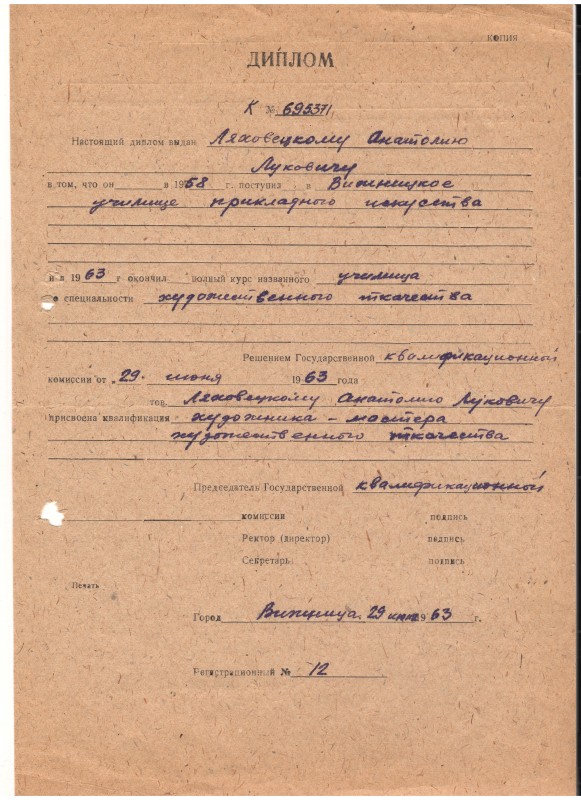 КОПИЯ
ДИПЛОМ
К № 695371
Настоящий диплом выдан Ляховецкому Анатолию
Луковичу
в том, что он в 1958 г. поступил в Вижницкое
училище прикладного искусства
и в 1963 г окончил полный курс названного училища
о специальности художественного ткачества
Решением Государственной квалификационный
комиссии от „29. июня 1963 года
тов. Ляховецкому Анатолию Луковичу
присвоена квалификация художника – мастера
художественного ткачества
Председатель Государственной квалификационный
комиссии подпись
Ректор (директор) подпись
Секретарь подпись
Печать
Город Вижница. 29 1963 г.
Регистрационный № 12